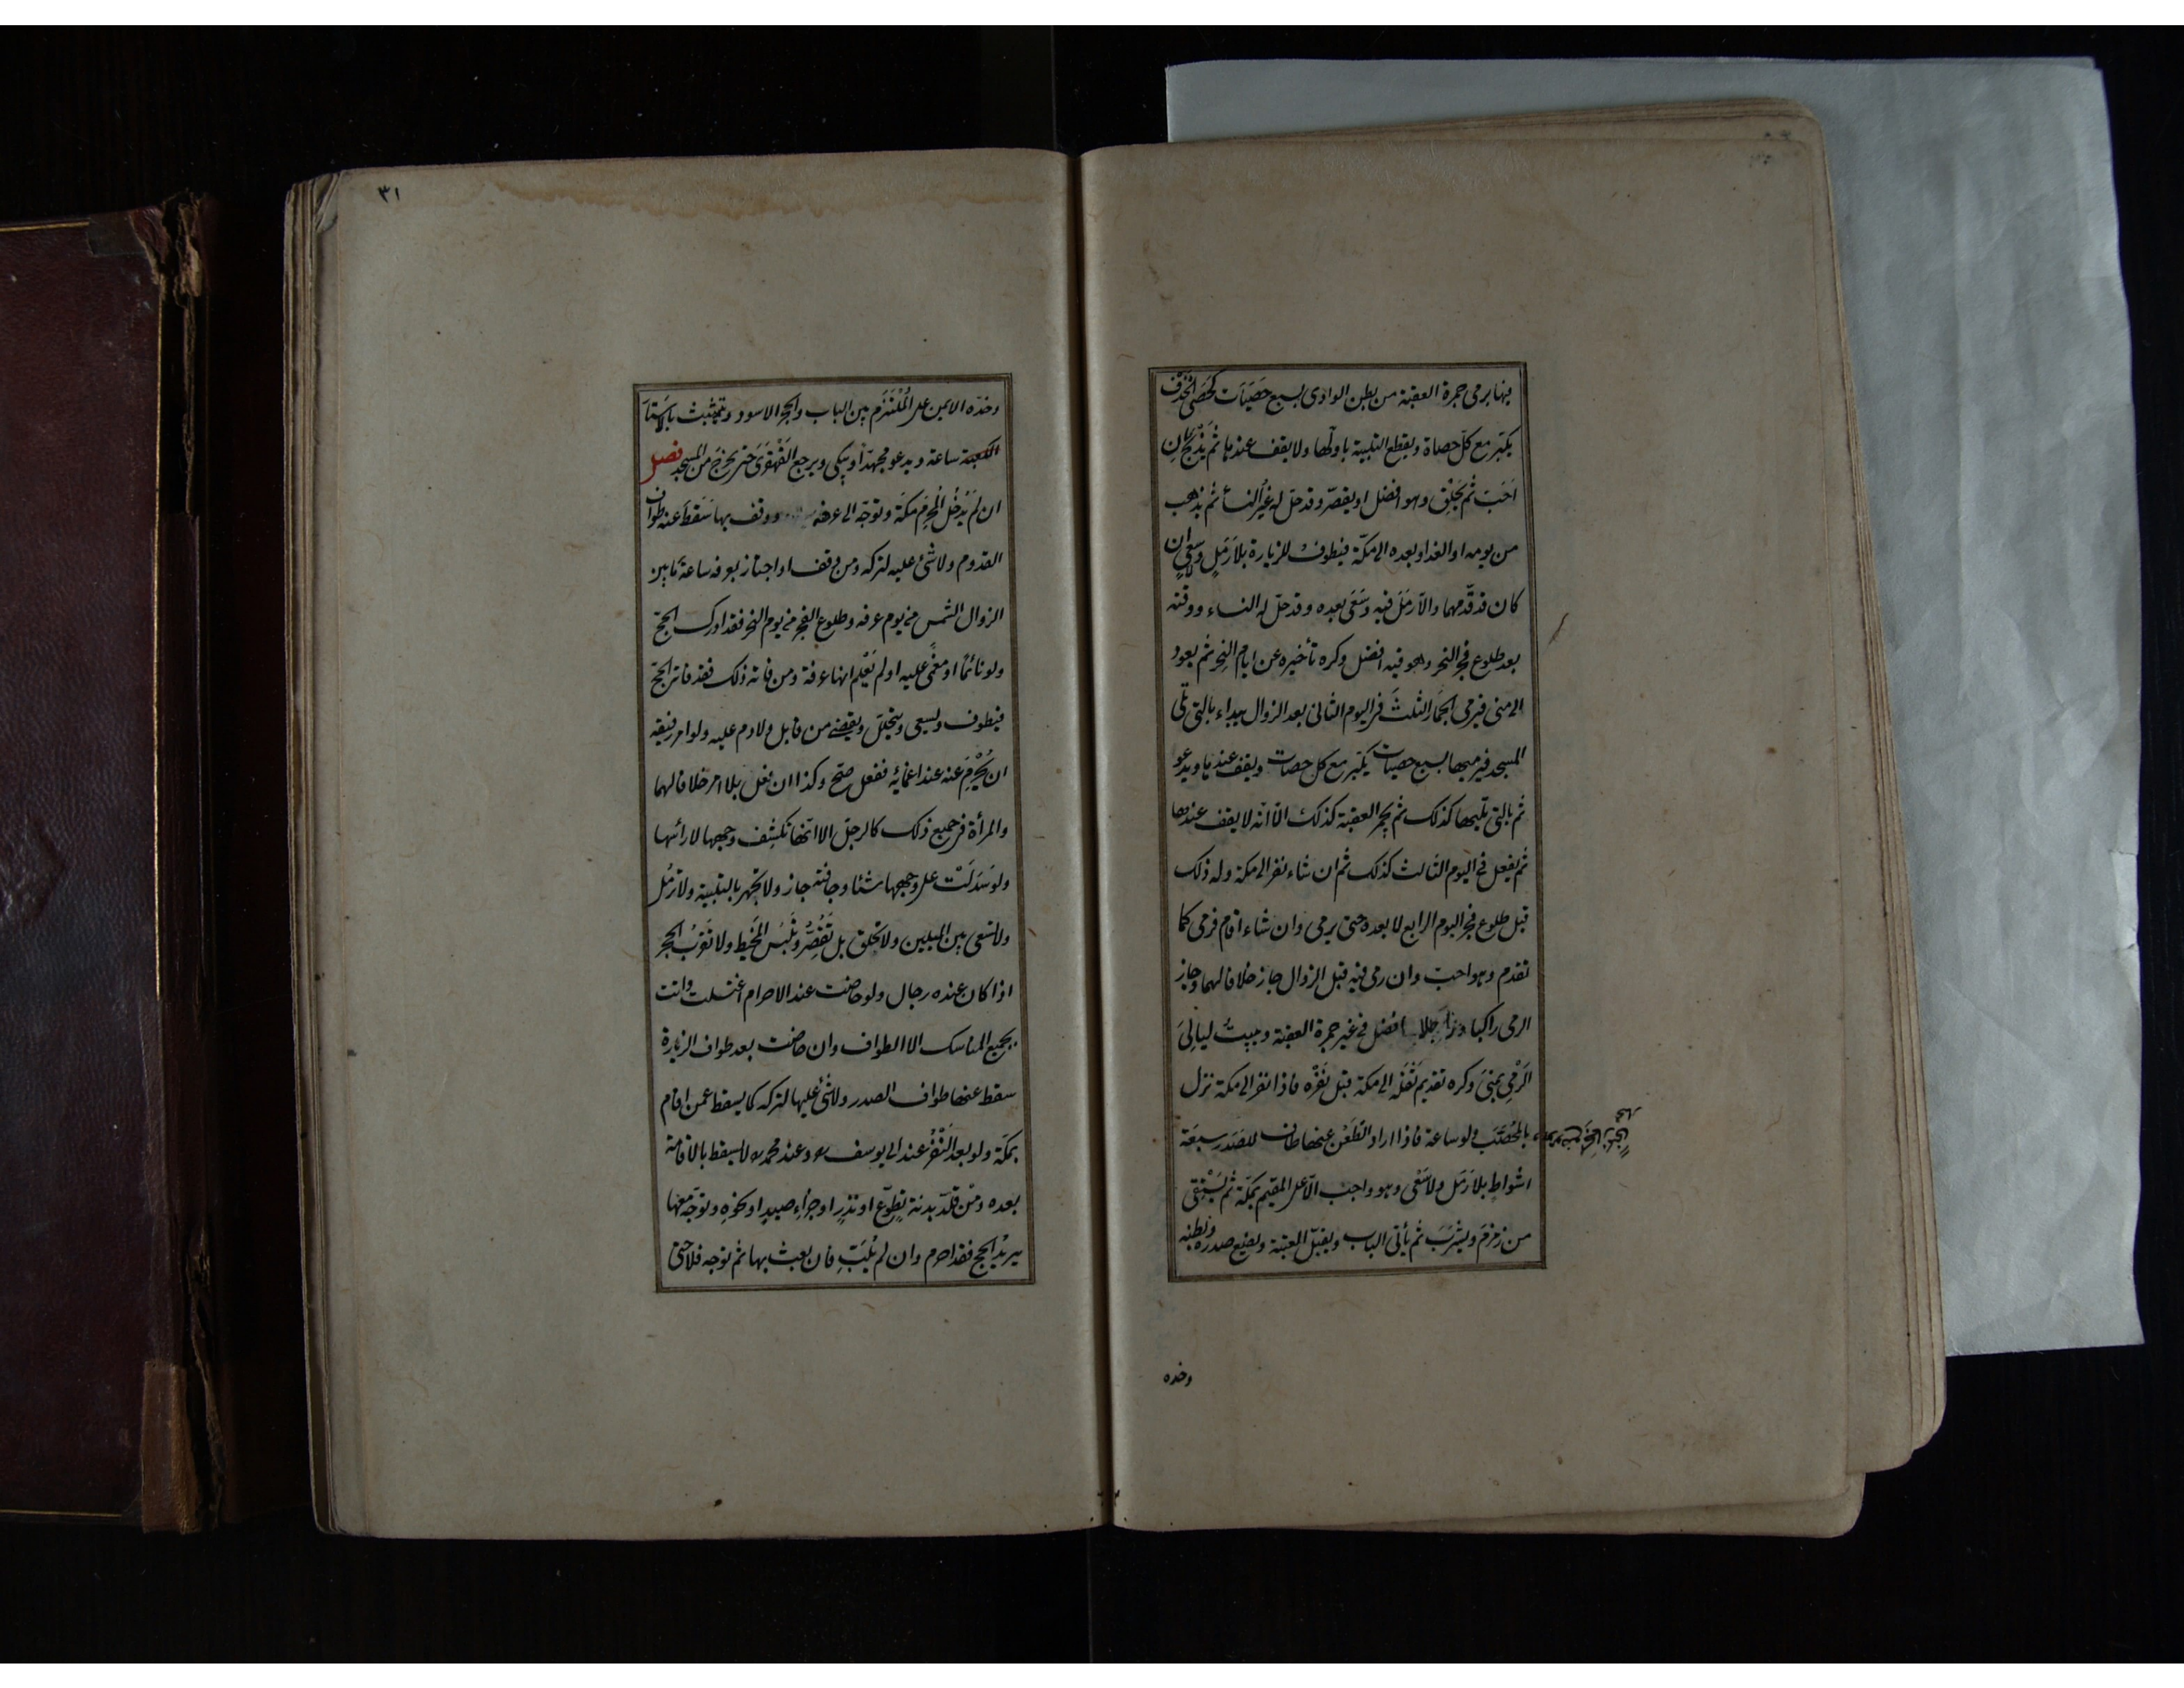 بها يرمى جمرة العقبة من بطن الوادى بسبع حصيات كحصى الخذف
يكبّر مع كلّ حصاة ويقطع التلبية باولها ولا يقف عندها ثم يذبح ان
احبّ ثم يحلق وهو افضل او يقصّر وقد حلّ له غير النسأ ثم يذهب
من يومه او الغد او بعده الى مكّة فيطوف للزيارة بلا رَمَلٍ وسعىٍ ان
كان قد قدّمهما والّا رَمَلَ فيه وسَعَى بعده وقد حلّ له النساء ووقته
بعد طلوع فجر النحر وهو فيه افضل وكره تأخيره عن ايام النحر ثم يعود
الى منى فيرمى الجمار الثلث فى اليوم الثانى بعد الزوال يبداء بالتى تلى
المسجد فيرميها بسبع حصيات يكبّر مع كل حصات ويقف عندها ويدعو
ثم بالتى تليها كذلك ثم بجمرة العقبة كذلك الّا انه لا يقف عندها
ثم يفعل فى اليوم الثالث كذلك ثم ان شاء نفر الى مكة وله ذلك
قبل طلوع فجر اليوم الرابع لا بعده حتى يرمى وان شاء اقام فرمى كما
تقدم وهو احبّ وان رمى فيه قبل الزوال جاز خلافا لهما وجاز
الرمى راكبا وراجلا افضل فى غير جمرة العقبة ويبيتُ ليالِىَ
الرَمْىِ بمنىً وكره تقديم ثَقَله الى مكة قبل نَفْره فاذا نفر الى مكة نزل
بالمُحَصَّب ولو ساعة فاذا اراد الظَعْنَ عنها طاف للصَدَر سبعَة
اشواط بلا رَمَل ولا سَعْى وهو واجب الّا على المقيم بمكّة ثم يَسْتَقى
من زمزمَ ويشرَبَ ثم يأتى الباب ويقبّل العتبة ويضع صدره وبطنه
وخده
٣١
وخدّه الايمن على المُلْتَزَم بين الباب والحجر الاسود ويتشبث باَستار
الكعبة ساعة ويدعو مجهّدا ويبكى ويرجع القَهْقَرَى حتى يخرجَ من المسجد فصل
ان لَمْ يَدْخُلْ المُحْرِمُ مكّة وتوجّه الى عرفة ووقف بها سَقَطَ عنه طواف
القدوم ولا شئ عليه لتركه ومن وقف او اجتاز بعرفه ساعةً ما بين
الزوال الشمس من يوم عرفه وطلوع الفجر من يوم النحر فقد ادرك الحجّ
ولو نائماً او مغمًى عليه او لم يَعْلم انها عرفة ومن فاته ذلك فقد فاته الحجّ
فيطوف ويسعى ويتحلّل ويقضى من قابل ولا دم عليه ولو امر رفيقه
ان يُحْرِمَ عنه عند اغمائِه ففعل صحّ وكذا ان فعل بلا امر خلافا لهما
والمرأة فى جميع ذلك كالرجل الا انّها تكشف وجهها لا رائسها
ولو سَدَلَتْ على وجهها شئا وجافته جاز ولا تجهر بالتلبية ولا ترمُل
ولا تسعى بين الميلين ولا تحلق بل تَقُصِّرُ وتَلْبَسُ المَخيط ولا تقرَبُ الحجر
اذا كان عنده رجال ولو حاضت عند الاحرام اغتسلت واتت
بجميع المناسك الا الطواف وان حاضت بعد طواف الزيارة
سقط عنها طواف الصدر ولا شئ عليها لتركه كما يسقط عمن اقام
بمكّة ولو بعد النّفْرُ عند ابى يوسف وعند محمد لا يسقط بالاقامة
بعده ومَنْ قلّد بدنة تطوّعٍ او نذرٍ او جزاءِ صيدٍ او نحوه وتوجّه معها
يريدُ الحج فقد احرم وان لم يُلبّ فان بعث بها ثم توجه فلا حتى